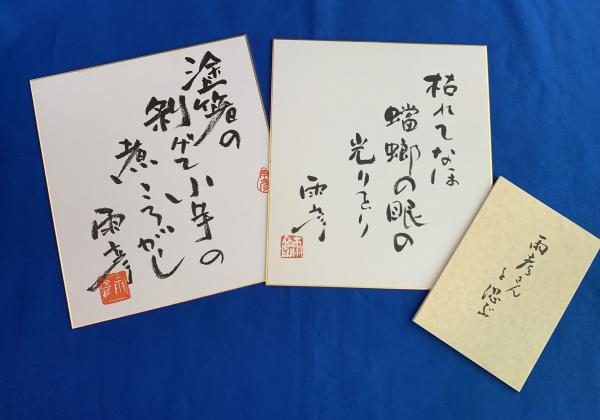 塗箸の
剥げて小芋の
煮ころがし
雨彦
枯れてなほ
蟷螂の眼の
光りをり
雨彦
雨彦さん
を偲ぶ